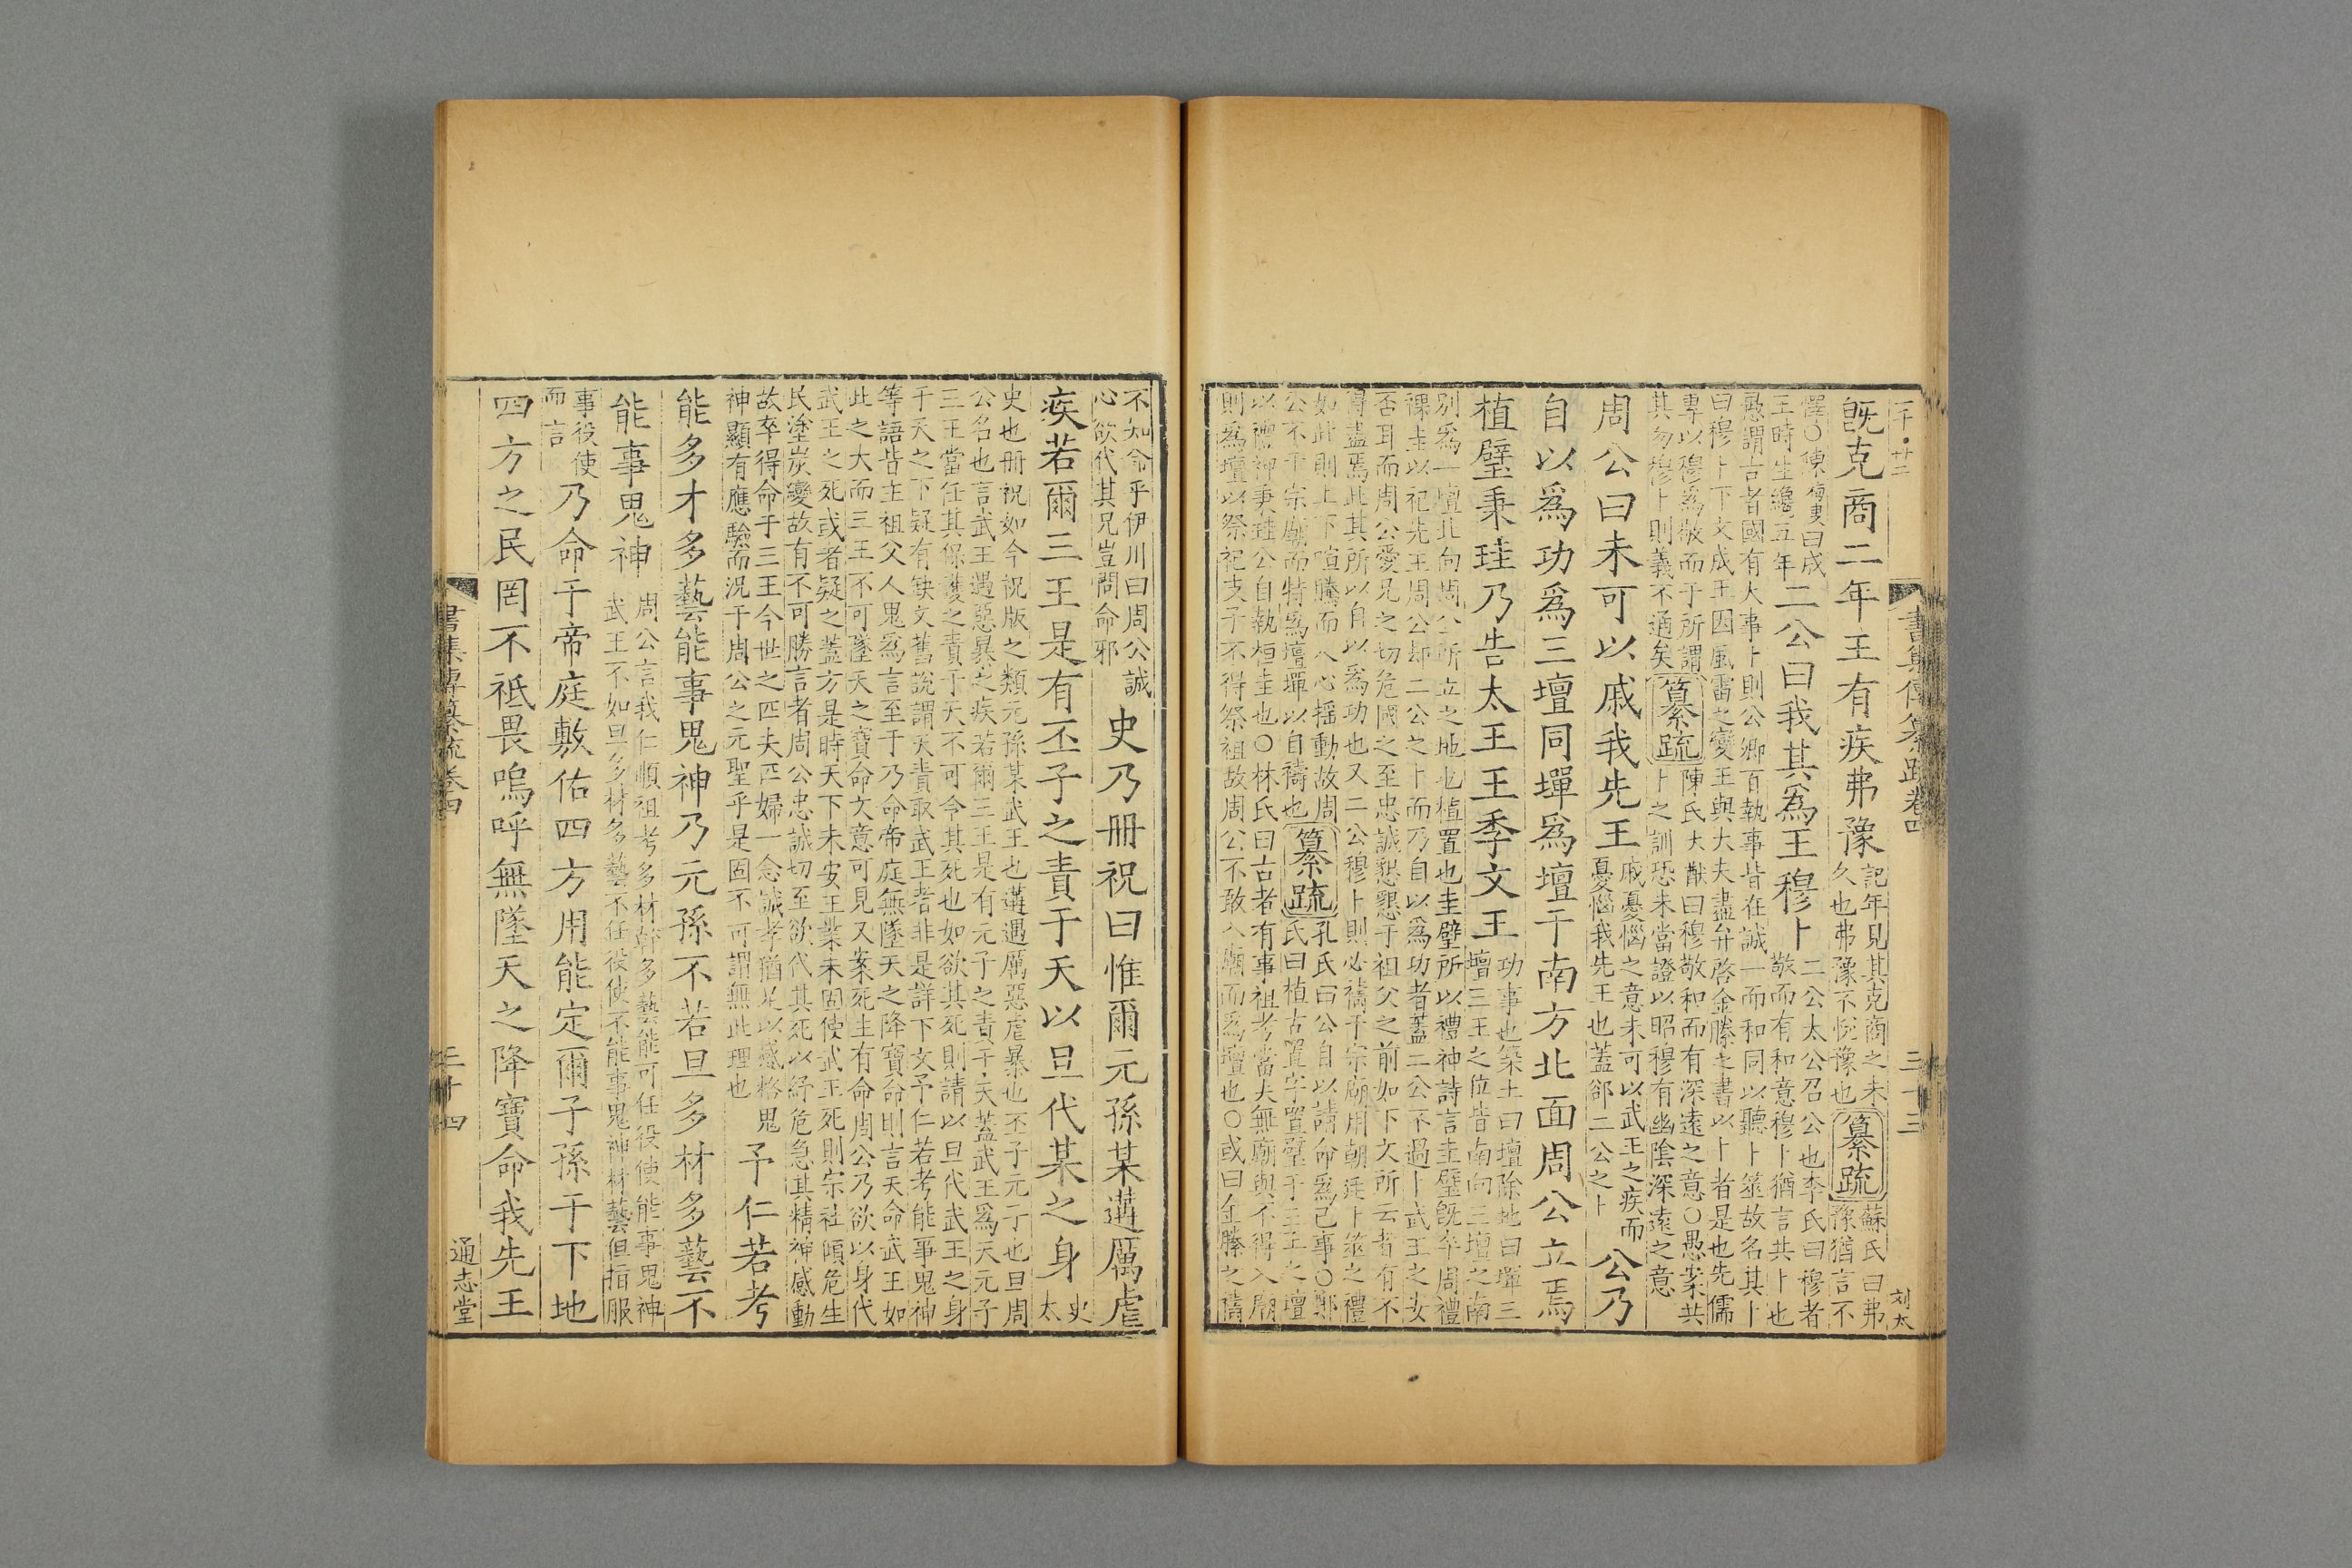 書集傳纂疏卷四
三十三
刘太
既克商二年王有疾弗豫
記年見其克商之未
久也弗豫不悅豫也
纂疏
蘇氏曰弗
豫猶言不
懌○陳傅叟曰成
王時生纔五年
二公曰我其爲王穆卜
二公太公召公也李氏曰穆者
敬而有和意穆卜猶言共卜也
愚謂古者國有大事卜則公卿百執事皆在誠一而和同以聽卜筮故名其卜
曰穆卜下文成王因風雷之變王與大夫盡弁啓金縢之書以卜者是也先儒
專以穆爲敬而于所謂
其勿穆卜則義不通矣
纂疏
陳氏大猷曰穆敬和而有深遠之意○愚案共
卜之訓恐未當證以昭穆有幽陰深遠之意
周公曰未可以戚我先王
戚憂惱之意未可以武王之疾而
憂惱我先王也蓋郤二公之卜
公乃
自以爲功爲三壇同墠爲壇于南方北面周公立焉
植璧秉珪乃告太王王季文王
功事也築土曰壇除地曰墠三
壇三王之位皆南向三壇之南
別爲一壇北向周公所立之地也植置也圭璧所以禮神詩言圭璧既卒周禮
祼圭以祀先王周公却二公之卜而乃自以爲功者蓋二公不過卜武王之安
否耳而周公愛兄之切危國之至忠誠懇懇于祖父之前如下文所云者有不
得盡焉此其所以自以爲功也又二公穆卜則必禱于宗廟用朝廷卜筮之禮
如此則上下喧騰而人心搖動故周
公不于宗廟而特爲壇墠以自禱也
纂疏
孔氏曰公自以請命爲己事○鄭
氏曰植古置字置璧于三王之壇
以禮神秉珪公自執桓圭也○林氏曰古者有事祖考當夫無廟與不得入廟
則爲壇以祭祀支子不得祭祖故周公不敢入廟而爲壇也○或曰金縢之禱
不知命乎伊川曰周公誠
心欲代其兄豈問命邪
史乃冊祝曰惟爾元孫某遘厲虐
疾若爾三王是有丕子之責于天以旦代某之身
史
太
史也冊祝如今祝版之類元孫某武王也遘遇厲惡虐暴也丕子元子也旦周
公名也言武王遇惡暴之疾若爾三王是有元子之責于天蓋武王爲天元子
三王當任其保護之責于天不可令其死也如欲其死則請以旦代武王之身
于天之下疑有缺文舊說謂天責取武王者非是詳下文予仁若考能事鬼神
等語皆主祖父人鬼爲言至于乃命帝庭無墜天之降寶命則言天命武王如
此之大而三王不可墜天之寶命文意可見又案死生有命周公乃欲以身代
武王之死或者疑之蓋方是時天下未安王業未固使武王死則宗社傾危生
民塗炭變故有不可勝言者周公忠誠切至欲代其死以紓危急其精神感動
故卒得命于三王今世之匹夫匹婦一念誠孝猶足以感格鬼
神顯有應驗而況于周公之元聖乎是固不可謂無此理也
予仁若考
能多才多藝能事鬼神乃元孫不若旦多材多藝不
能事鬼神
周公言我仁順祖考多材幹多藝能可任役使能事鬼神
武王不如旦多材多藝不任役使不能事鬼神材藝但指服
事役使
而言
乃命于帝庭敷佑四方用能定爾子孫于下地
四方之民罔不祗畏嗚呼無墜天之降寶命我先王
書集傳纂疏卷四
三十四
通志堂